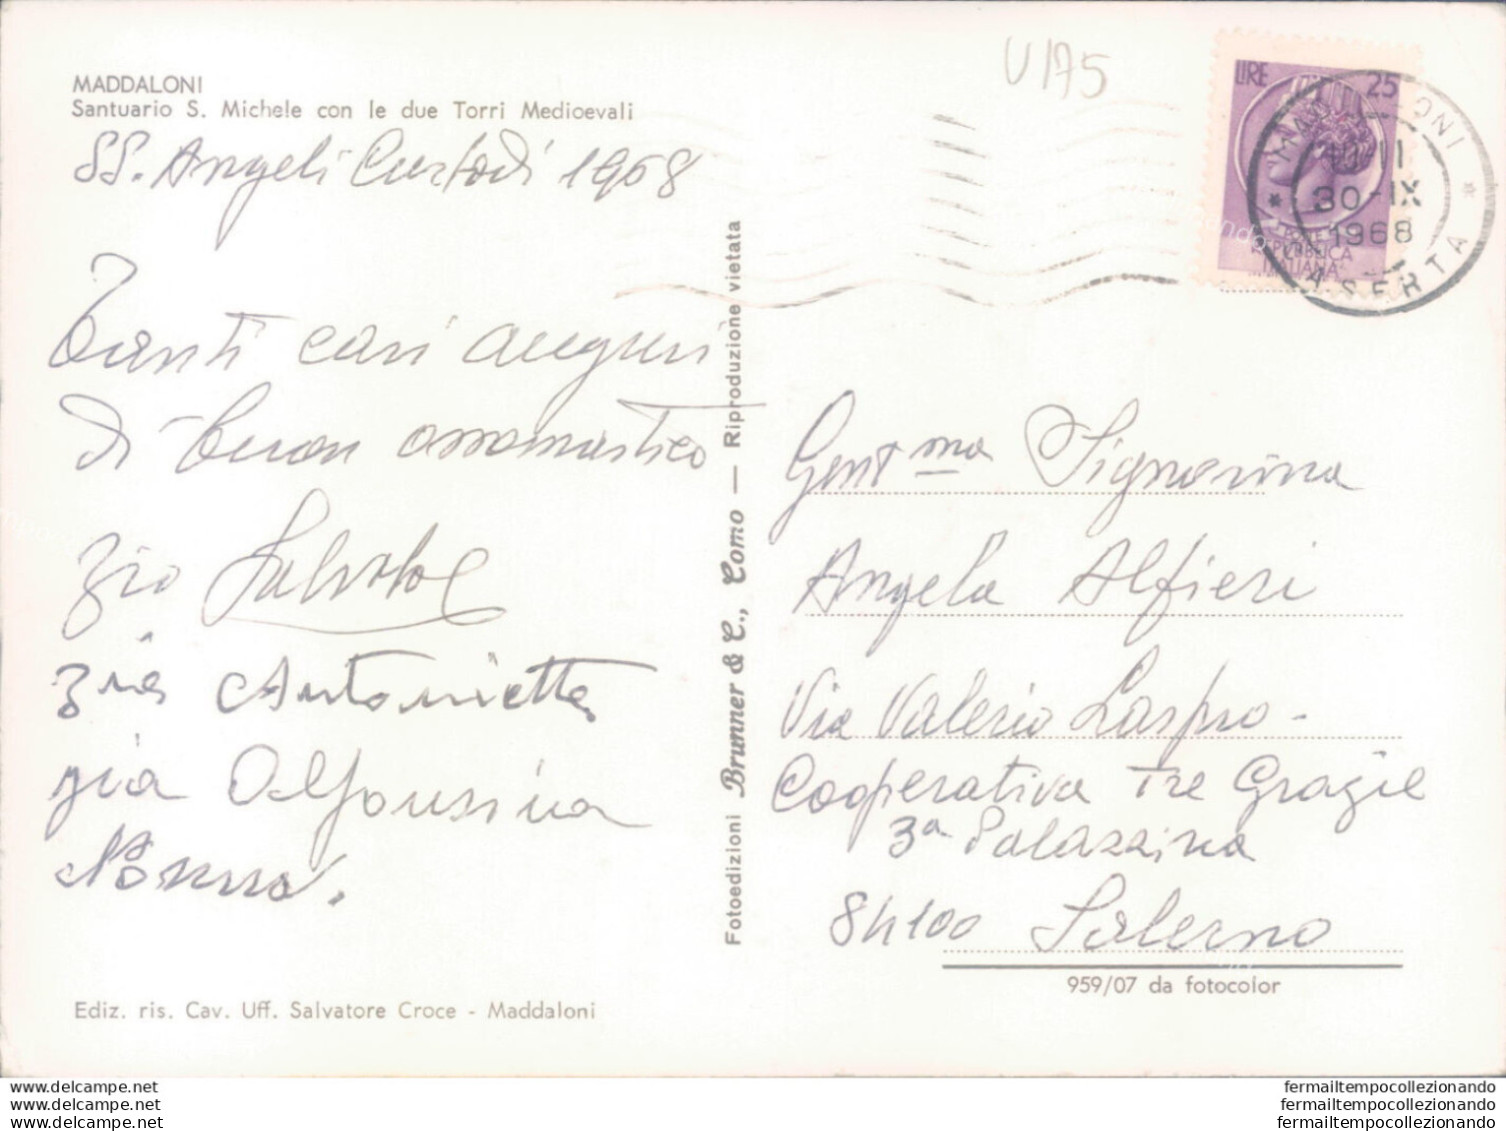 MADDALONI
Santuario S. Michele con le due Torri Medioevali
SS. Angeli Custodi 1968
Tanti cari auguri
di buon onomastico
zio Salvatore
zia Antonietta
zia Alfonsina
Nonna.
Ediz. ris. Cav. Uff. Salvatore Croce - Maddaloni
Fotoedizioni Brunner & C., Como — Riproduzione vietata
U175
LIRE 25
POSTE
REPUBBLICA
ITALIANA
* MADDALONI *
30-IX
1968
CASERTA
Gent.ma Signorina
Angela Alfieri
Via Valerio Laspro -
Cooperativa Tre Grazie
3a Palazzina
84100 Salerno
959/07 da fotocolor
www.delcampe.net
www.delcampe.net
www.delcampe.net
fermailtempocollezionando
fermailtempocollezionando
fermailtempocollezionando